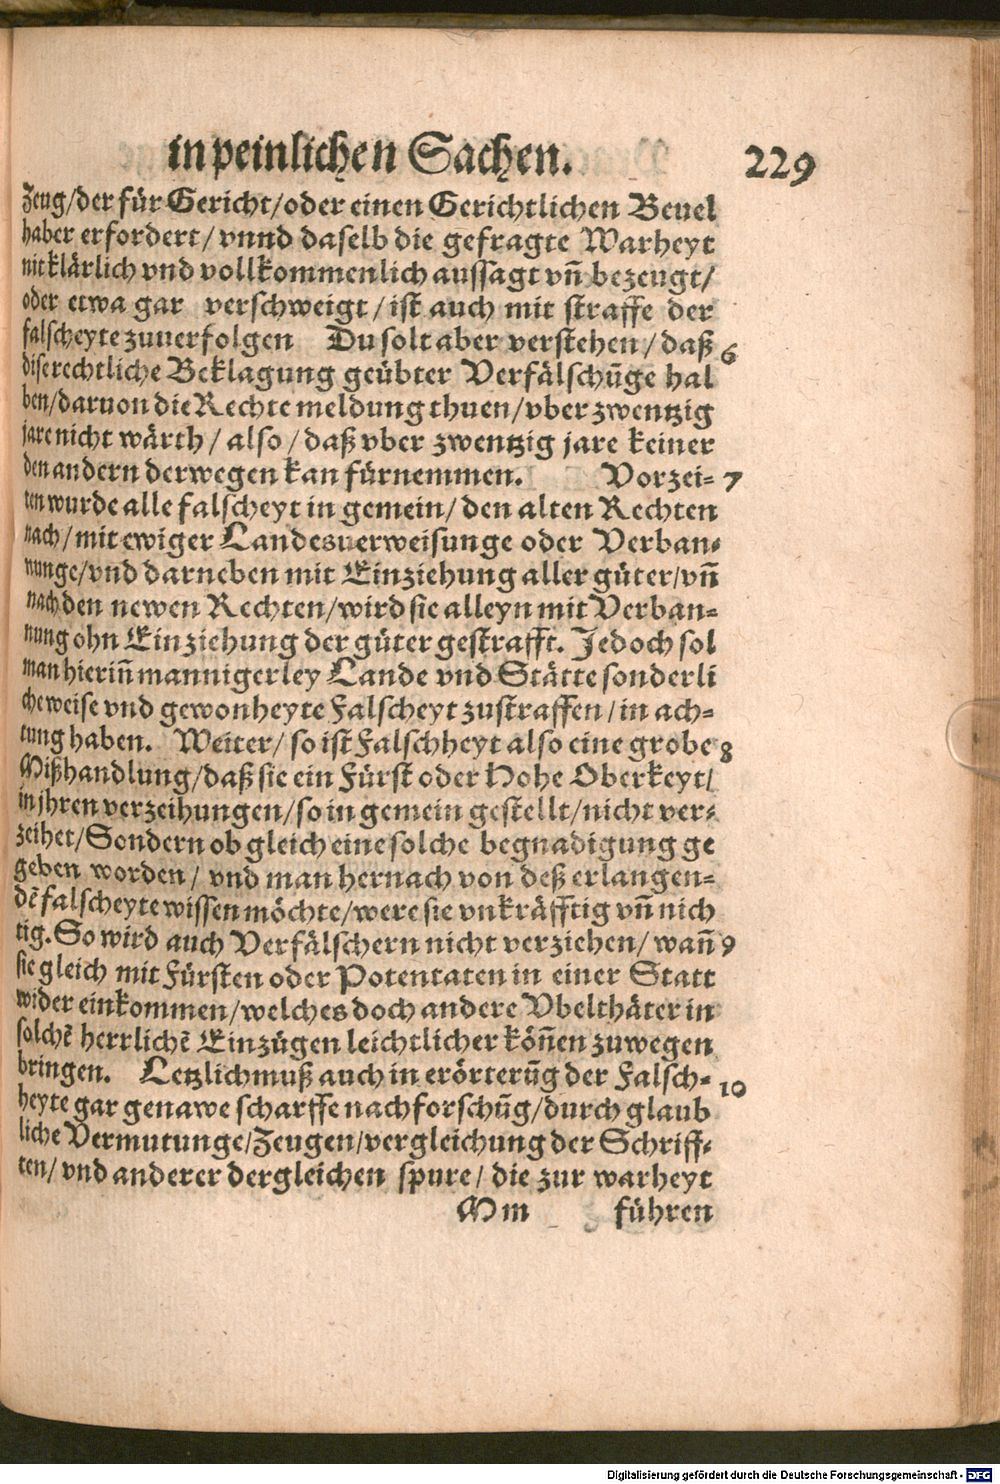 in peinlichen Sachen. 229
Zeug/der für Gericht/oder einen Gerichtlichen Beuel
haber erfordert/ vnnd daselb die gefragte Warheyt
nit klärlich vnd vollkommenlich aussagt vñ bezeugt/
oder etwa gar verschweigt/ist auch mit straffe der
falscheyte zuuerfolgen Du solt aber verstehen/daß 6
dise rechtliche Beklagung geübter Verfälschũge hal
ben/daruon die Rechte meldung thuen/vber zwentzig
jare nicht wärth/ also/daß vber zwentzig jare keiner
den andern derwegen kan fürnemmen. Vorzei= 7
ten wurde alle falscheyt in gemein/den alten Rechten
nach/mit ewiger Landesuerweisunge oder Verban=
nunge/vnd darneben mit Einziehung aller güter/vñ
nach den newen Rechten/wird sie alleyn mit Verban=
nung ohn Einziehung der güter gestrafft. Jedoch sol
man hieriñ mannigerley Lande vnd Stätte sonderli
che weise vnd gewonheyte Falscheyt zustraffen/in ach=
tung haben. Weiter/ so ist Falschheyt also eine grobe 8
Mißhandlung/daß sie ein Fürst oder Hohe Oberkeyt/
in jhren verzeihungen/so in gemein gestellt/nicht ver=
zeihet/Sondern ob gleich eine solche begnadigung ge
geben worden/ vnd man hernach von deß erlangen=
dẽ falscheyte wissen möchte/were sie vnkräfftig vñ nich
tig. So wird auch Verfälschern nicht verziehen/wañ 9
sie gleich mit Fürsten oder Potentaten in einer Statt
wider einkommen/welches doch andere Vbelthäter in
solchẽ herrlichẽ Einzügen leichtlicher köñen zuwegen
bringen. Letzlich muß auch in erörterũg der Falsch= 10
heyte gar genawe scharffe nachforschũg/durch glaub
liche Vermutunge/Zeugen/vergleichung der Schriff=
ten/vnd anderer dergleichen spure/die zur warheyt
Mm führen
Digitalisierung gefördert durch die Deutsche Forschungsgemeinschaft - DFG